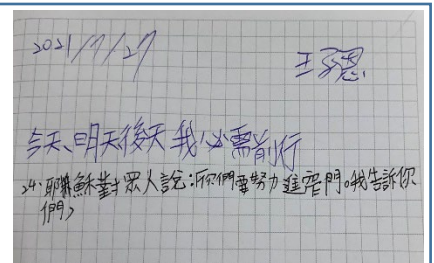 2021/7/27
今天、明天後天我必需前行
24. 耶穌對眾人說:你們要努力進窄門。我告訴你
們,